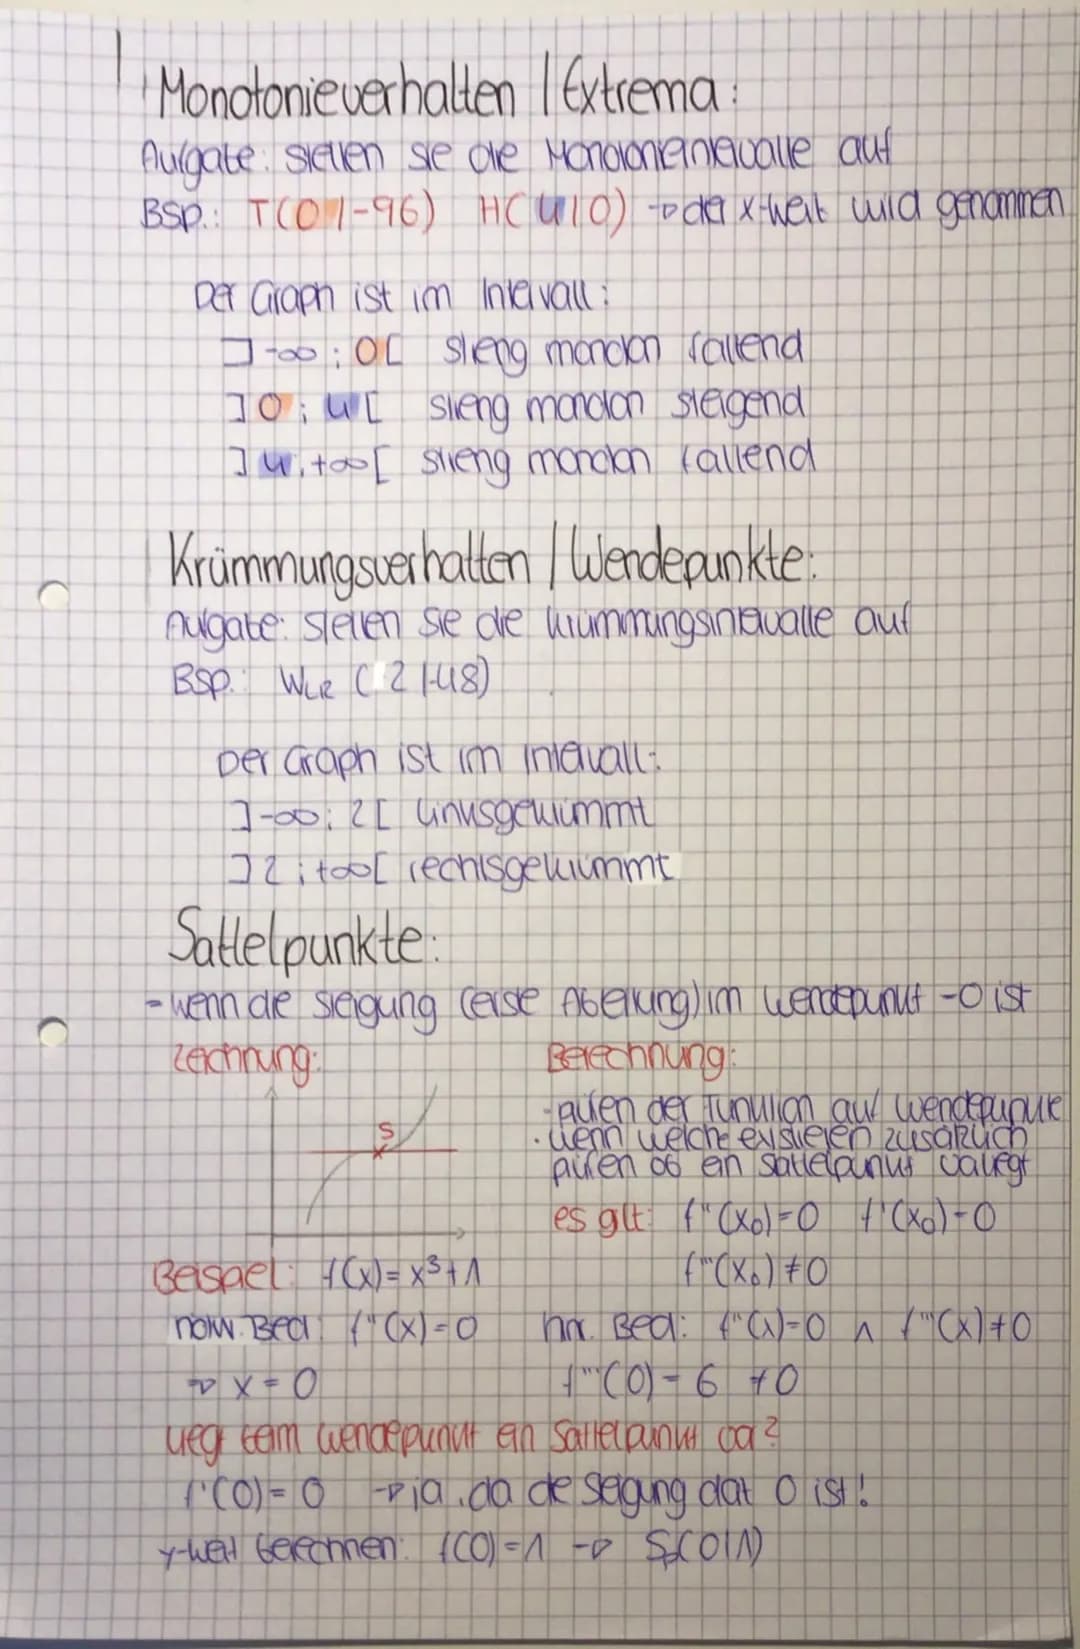 Monotonieverhalten / Extrema:
Aufgabe: stellen sie die Monotonieintervalle auf
BSP.: T(0|-96) H(4|0) → der x-Wert wird genommen
Der Graph ist im Intervall:
]-∞; 0[ streng monoton fallend
]0; 4[ streng monoton steigend
]4; +∞[ streng monoton fallend
Krümmungsverhalten / Wendepunkte:
Aufgabe: stellen sie die Krümmungsintervalle auf
BSP.: WLR (2|-48)
Der Graph ist im Intervall:
]-∞; 2[ linksgekrümmt
]2; +∞[ rechtsgekrümmt
Sattelpunkte:
- wenn die Steigung (erste Ableitung) im Wendepunkt =0 ist
Zeichnung:
S
Berechnung:
- prüfen der Funktion auf Wendepunkte
- wenn welche existieren zusätzlich
prüfen ob ein Sattelpunkt vorliegt
es gilt: f''(x₀)=0 f'(x₀)=0
f'''(x₀)≠0
Beispiel: f(x)=x³+1
notw. Bed: f''(x)=0
→ x=0
hin. Bed: f''(x)=0 ∧ f'''(x)≠0
f'''(0)=6 ≠0
Liegt beim Wendepunkt ein Sattelpunkt vor?
f'(0)=0 → ja, da die Steigung dort 0 ist!
y-Wert berechnen: f(0)=1 → Sp(0|1)